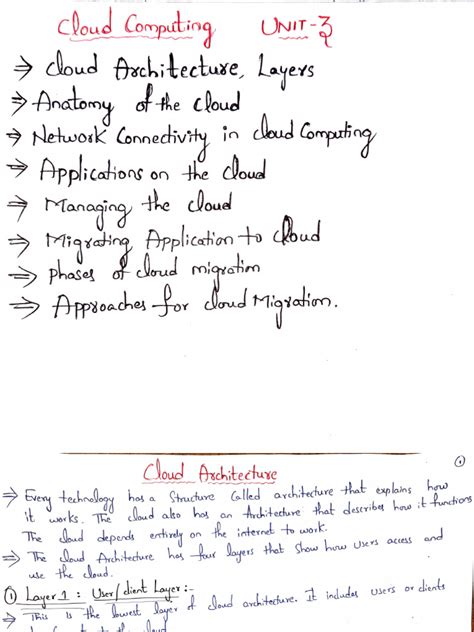 Cloud Computing UNIT-3
⇒ Cloud Architecture, Layers
⇒ Anatomy of the Cloud
⇒ Network Connectivity in cloud Computing
⇒ Applications on the cloud
⇒ Managing the cloud
⇒ Migrating Application to cloud
⇒ phases of cloud migration
⇒ Approaches for cloud Migration.
①
Cloud Architecture
⇒ Every technology has a Structure called architecture that explains how
it works. The cloud also has an Architecture that describes how it functions
The cloud depends entirely on the internet to work.
⇒ The cloud Architecture has four layers that show how users access and
use the cloud.
① Layer 1 : User/client Layer:-
⇒ This is the lowest layer of cloud architecture. It includes users or clients